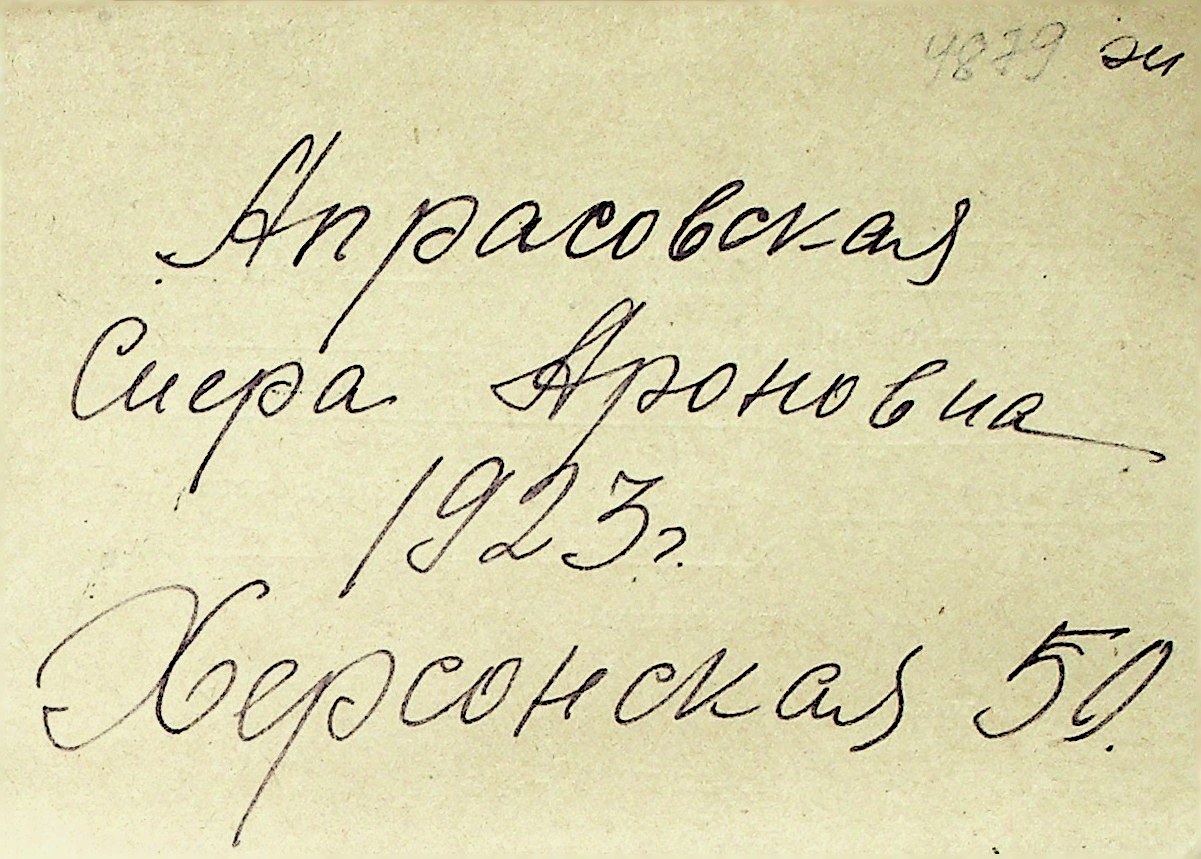 4879 эи
Апрасовская
Сиера Ароновна
1923г.
Херсонская 50.